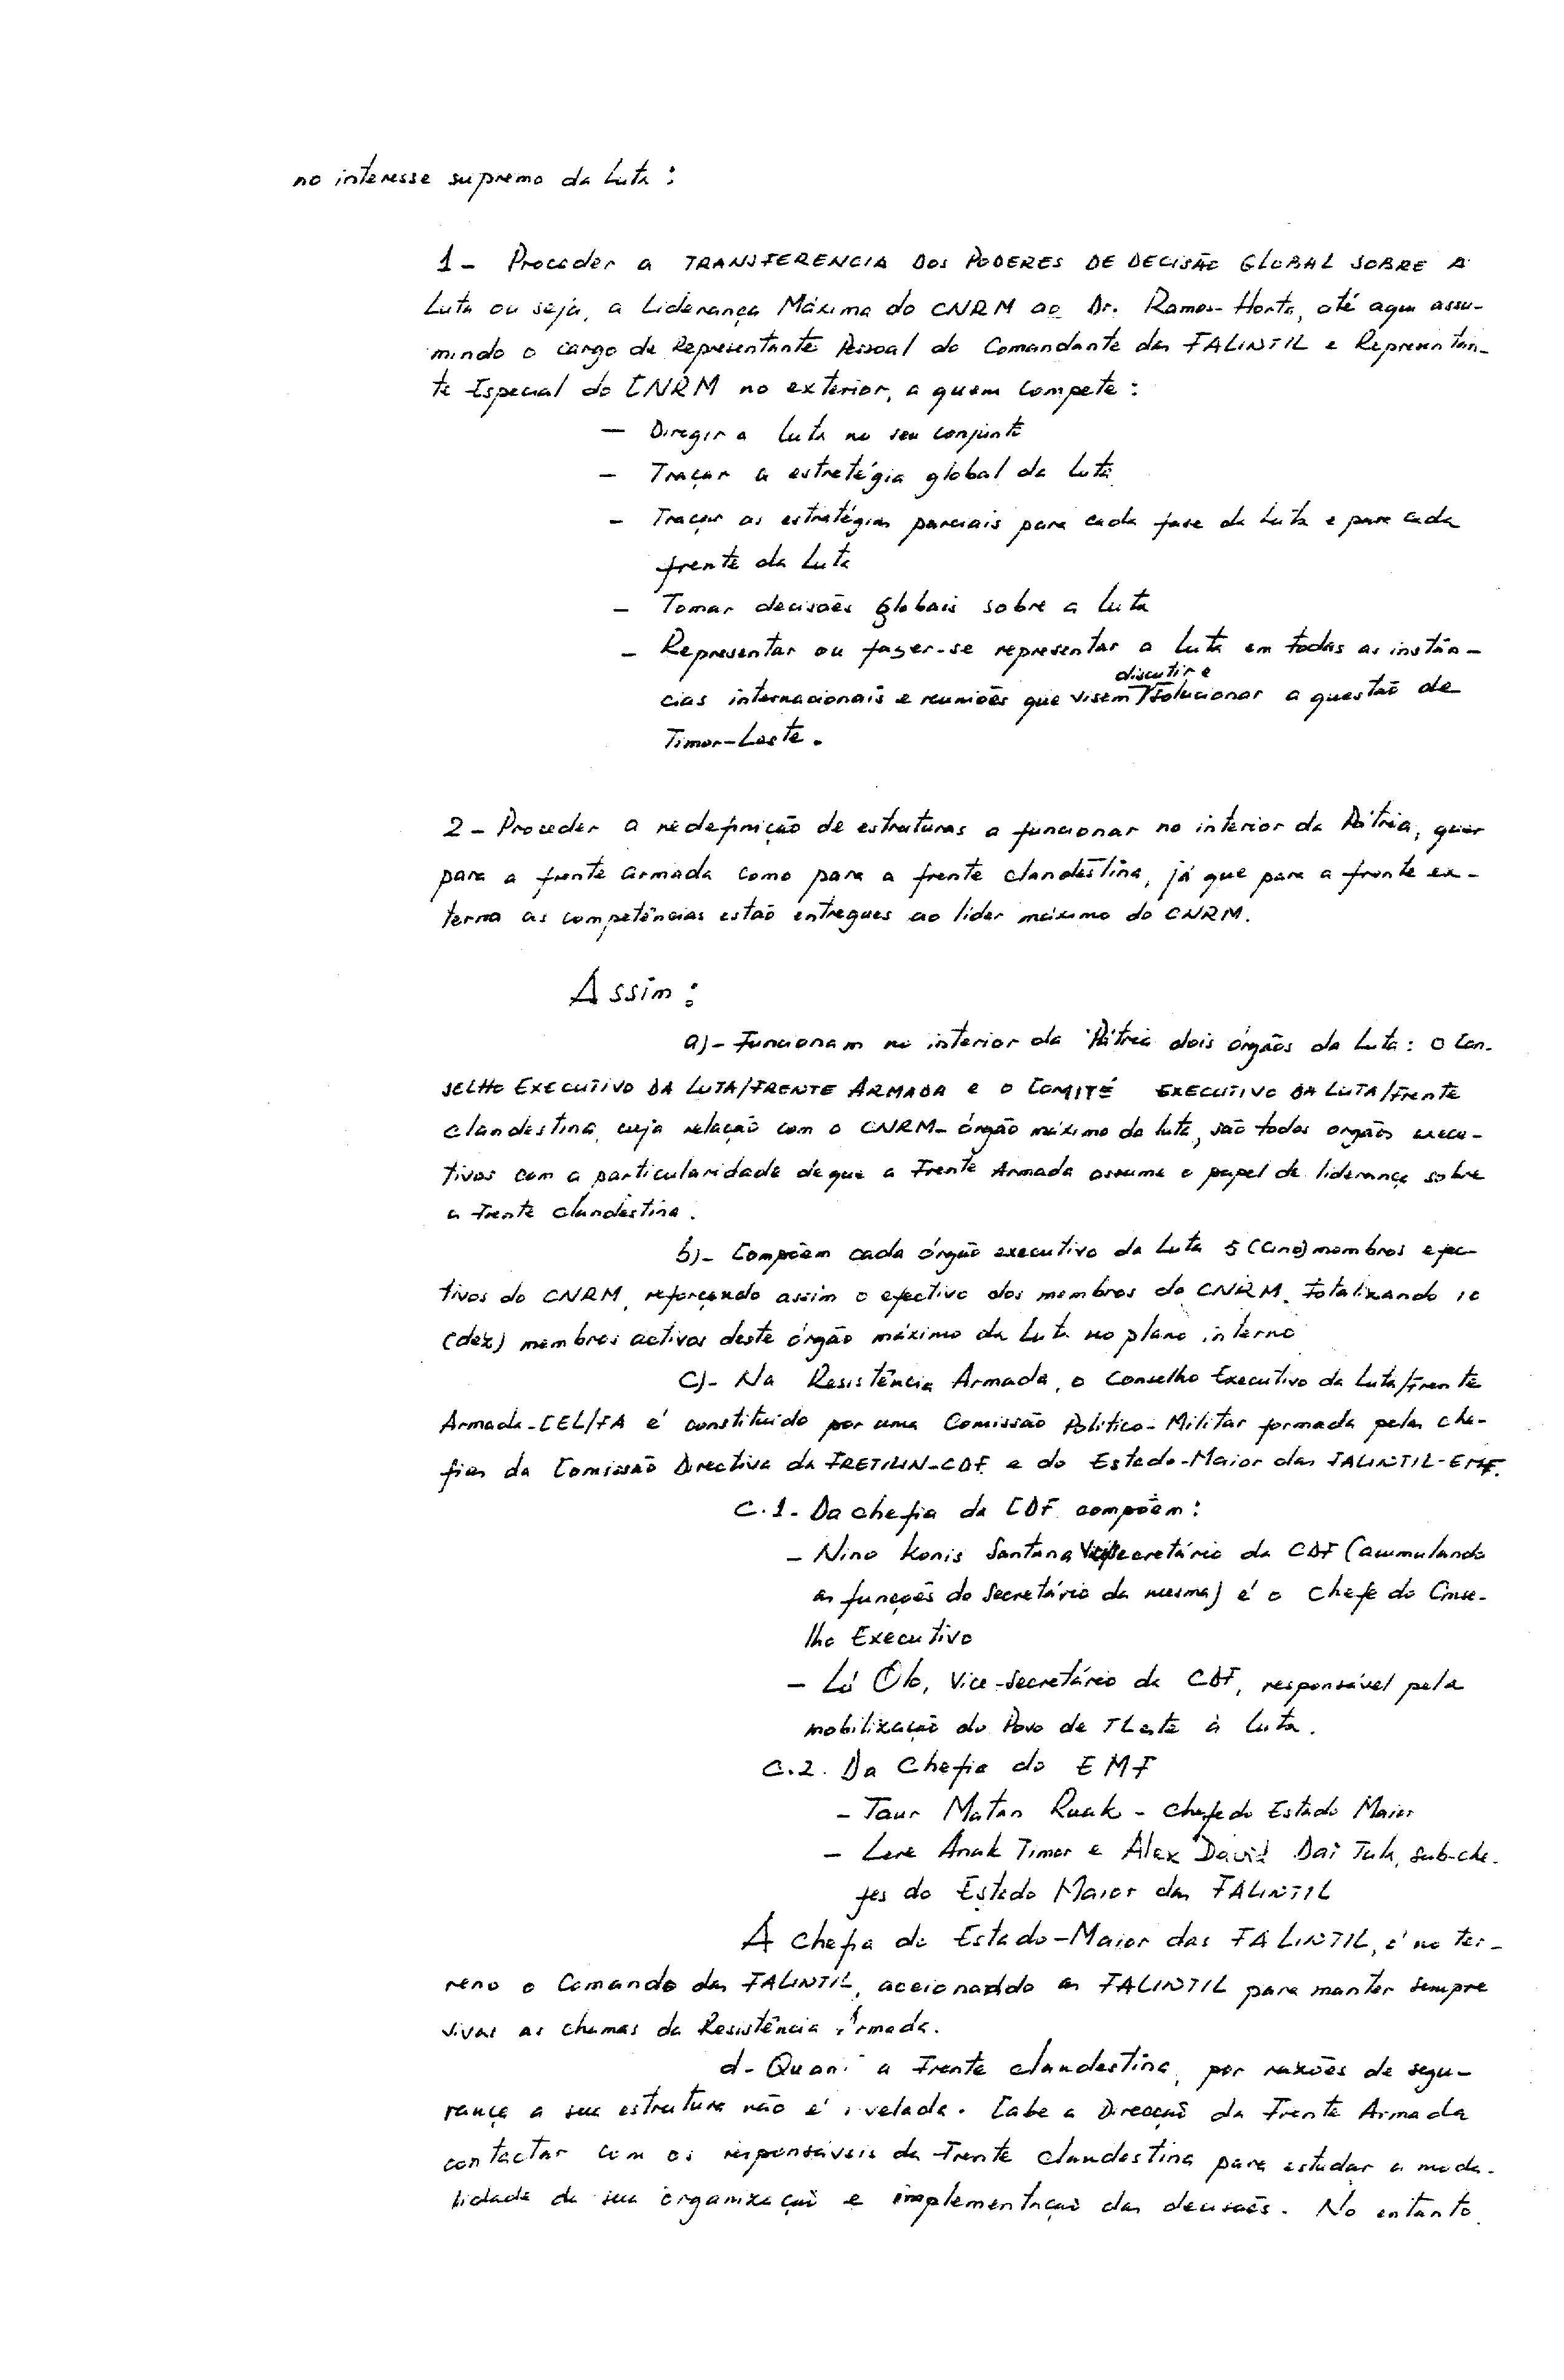 no interesse supremo da Luta :
1 - Proceder a TRANSFERENCIA DOS PODERES DE DECISÃO GLOBAL SOBRE A
Luta ou seja, a Liderança Máxima do CNRM ao Dr. Ramos-Horta, até aqui assu-
mindo o cargo de Representante Pessoal do Comandante das FALINTIL e Representan-
te Especial do CNRM no exterior, a quem compete :
- Dirigir a Luta no seu conjunto
- Traçar a estretégia global da Luta
- Traçar as estratégias parciais para cada fase da Luta e para cada
frente da Luta
- Tomar decisões globais sobre a luta
- Representar ou fazer-se representar a Luta em todas as instân-
discutir e
cias internacionais e reuniões que visem solucionar a questão de
Timor-Leste.
2 - Proceder a redefinição de estruturas a funcionar no interior da Pátria, quer
para a frente armada como para a frente clandestina, já que para a frente ex-
terna as competências estão entregues ao líder máximo do CNRM.
Assim :
a)- Funcionam no interior da Pátria dois órgãos da Luta: O Con-
SELHO EXECUTIVO DA LUTA/FRENTE ARMADA e o COMITÉ EXECUTIVO DA LUTA/Frente
Clandestina, cuja relação com o CNRM- órgão máximo da luta, são todos orgãos execu-
tivos com a particularidade de que a Frente Armada assume o papel de liderança sobre
a Frente Clandestina.
b)- Compõem cada órgão executivo da Luta 5 (Cinco) membros efec-
tivos do CNRM, reforçando assim o efectivo dos membros do CNRM. Totalizando 10
(dez) membros activos deste órgão máximo da Luta no plano interno
C)- Na Resistência Armada, o Conselho Executivo da Luta/Frente
Armada-CEL/FA é constituido por uma Comissão Político-Militar formada pelas che-
fias da Comissão Directiva da FRETILIN-CDF. e do Estado-Maior das FALINTIL-EMF.
C.1- Da chefia da CDF compõem :
- Nino Konis Santana Vice Secretário da CDF (acumulando
as funções do Secretário da mesma) é o Chefe do Conse-
lho Executivo
- Lú Ólo, Vice-Secretário da CDF, responsável pela
mobilização do Povo de TLeste à luta.
C.2. Da Chefia do EMF
- Taur Matan Ruak - Chefe do Estado Maior
- Lere Anak Timor e Alex David Dai Tula, sub-che-
fes do Estado Maior das FALINTIL
A chefia do Estado-Maior das FALINTIL, é no ter-
reno o Comando das FALINTIL, accionando as FALINTIL para manter sempre
vivas as chamas da Resistência Armada.
d- Quan a Frente Clandestina, por razões de segu-
rança a sua estrutura não é velada. Cabe a Direcção da Frente Armada
contactar com os responsáveis da Frente Clandestina para estudar a moda-
lidade da sua organização e implementação das decisões. No entanto